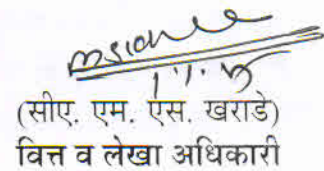 (सीए. एम. एस. खराडे)
वित्त व लेखा अधिकारी